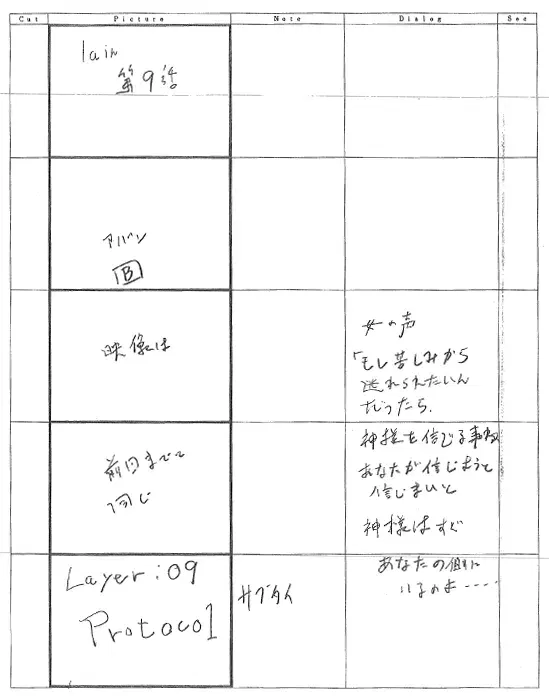 Cut Picture Note Dialog Sec
lain
第9話
アバン
B
映像は
女の声
「もし苦しみから
逃れられたいん
だったら、
前回までと
同じ
神様を信じる事ね
あなたが信じようと
信じまいと
神様はすぐ
Layer:09
Protocol
サブタイ
あなたの側に
いるのよ‥‥